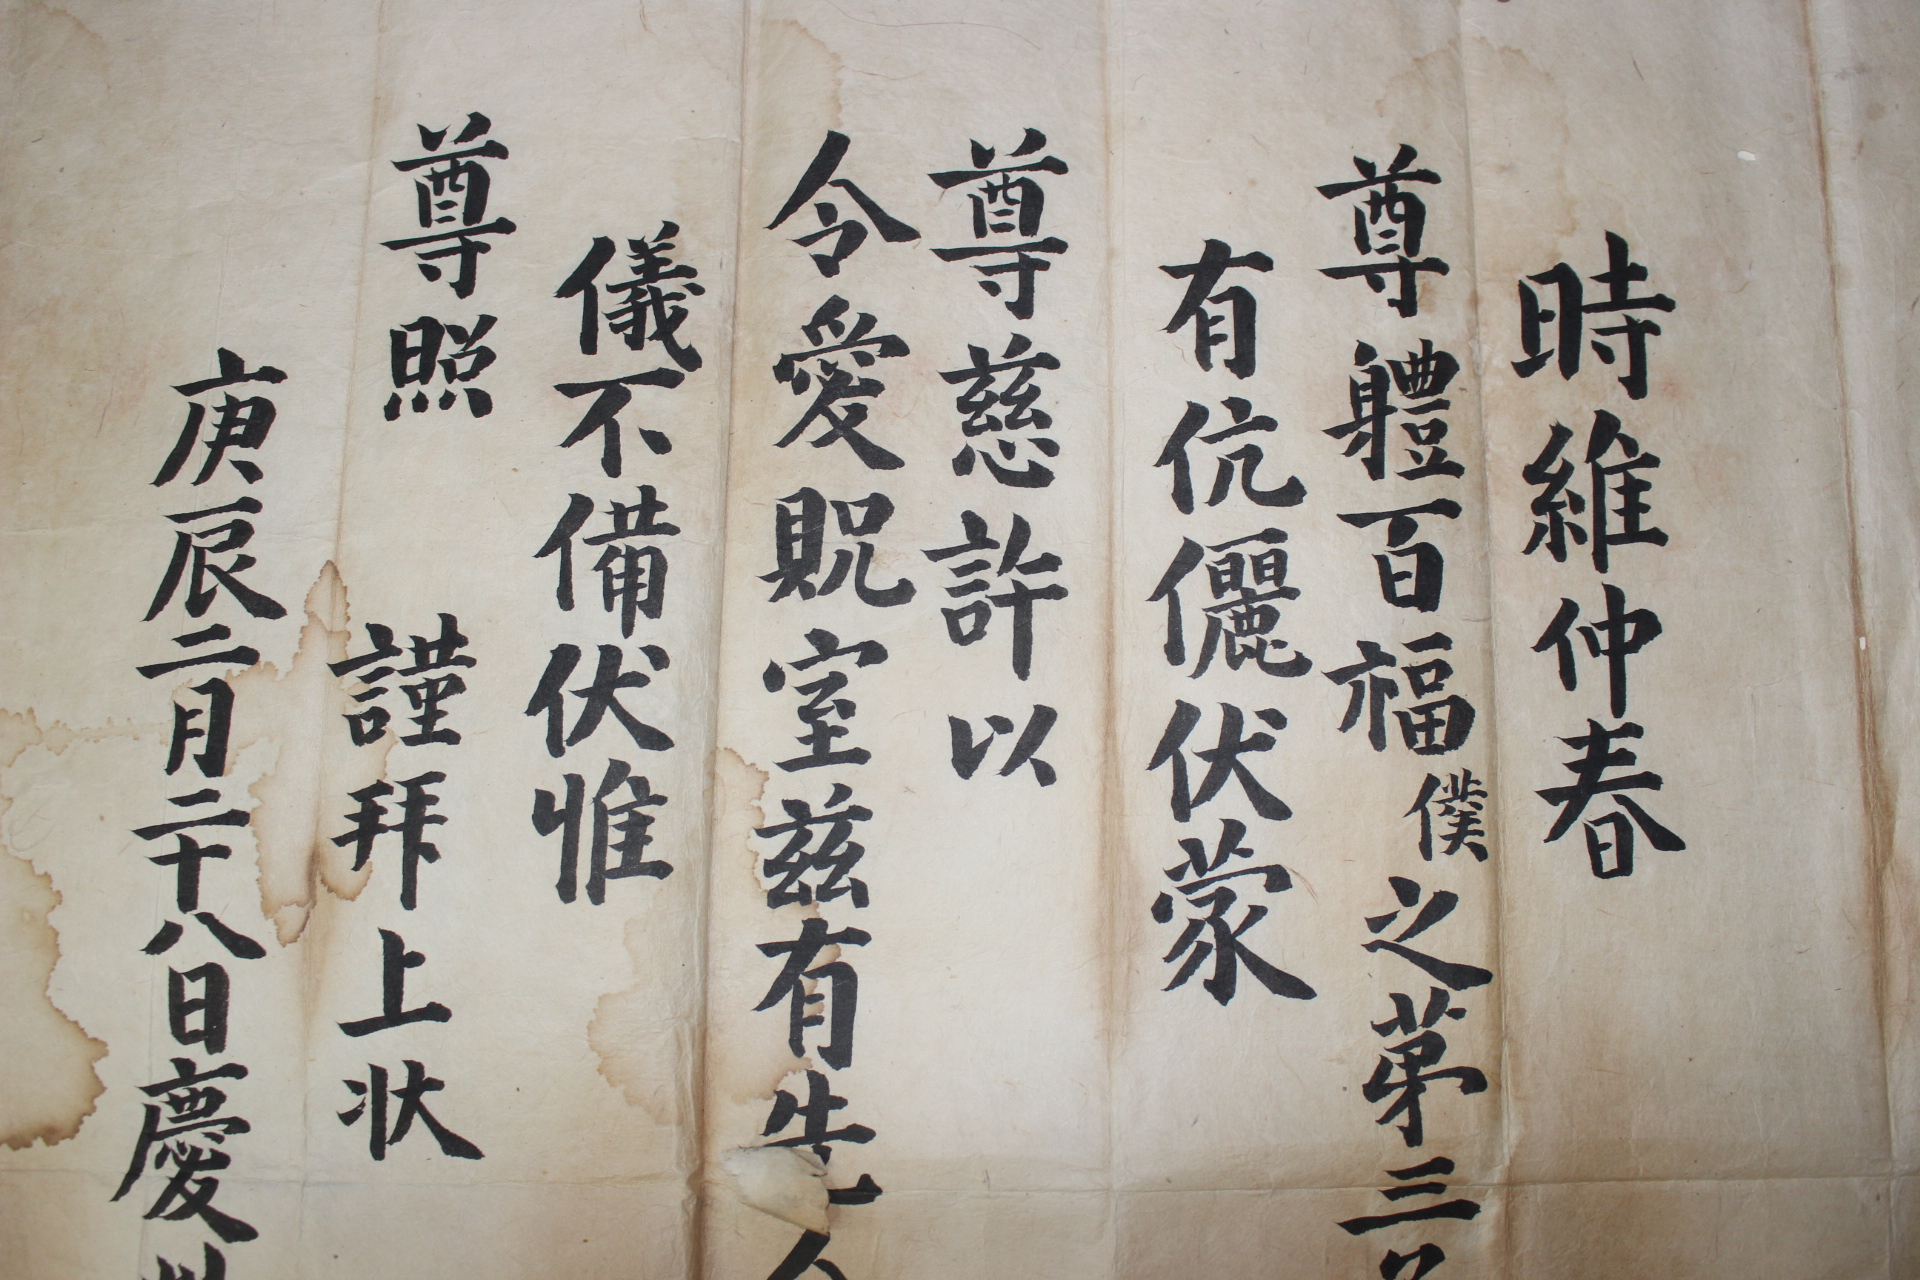 時維仲春
尊軆百福僕之苐三
有伉儷伏蒙
尊慈許以
令愛貺室兹有先人
儀不備伏惟
尊照 謹拜上状
庚辰二月二十八日慶州